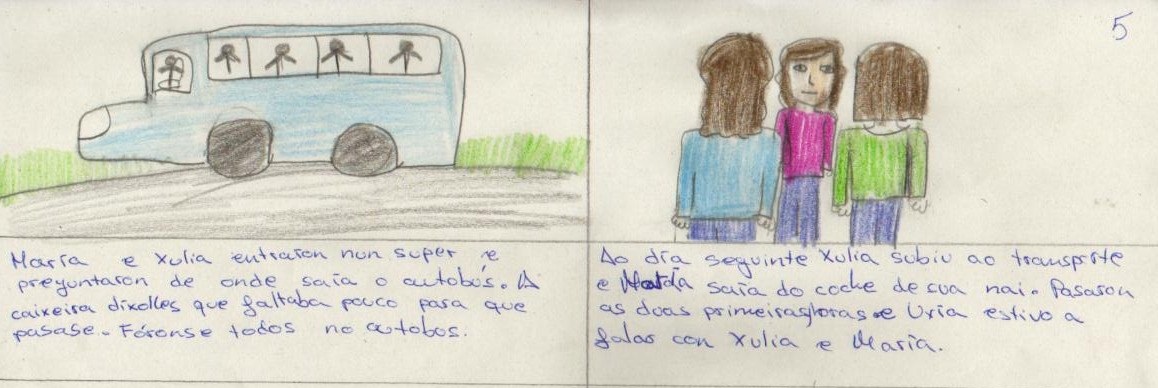 5
María e Xulia entraron nun super e
preguntaron de onde saía o autobús. A
caixeira díxolles que faltaba pouco para que
pasase. Fóronse todos no autobos.
Ao día seguinte Xulia subiu ao transporte
e saía do coche de sua nai. Pasaron
as duas primeiras horas e Uria estivo a
falar con Xulia e María.